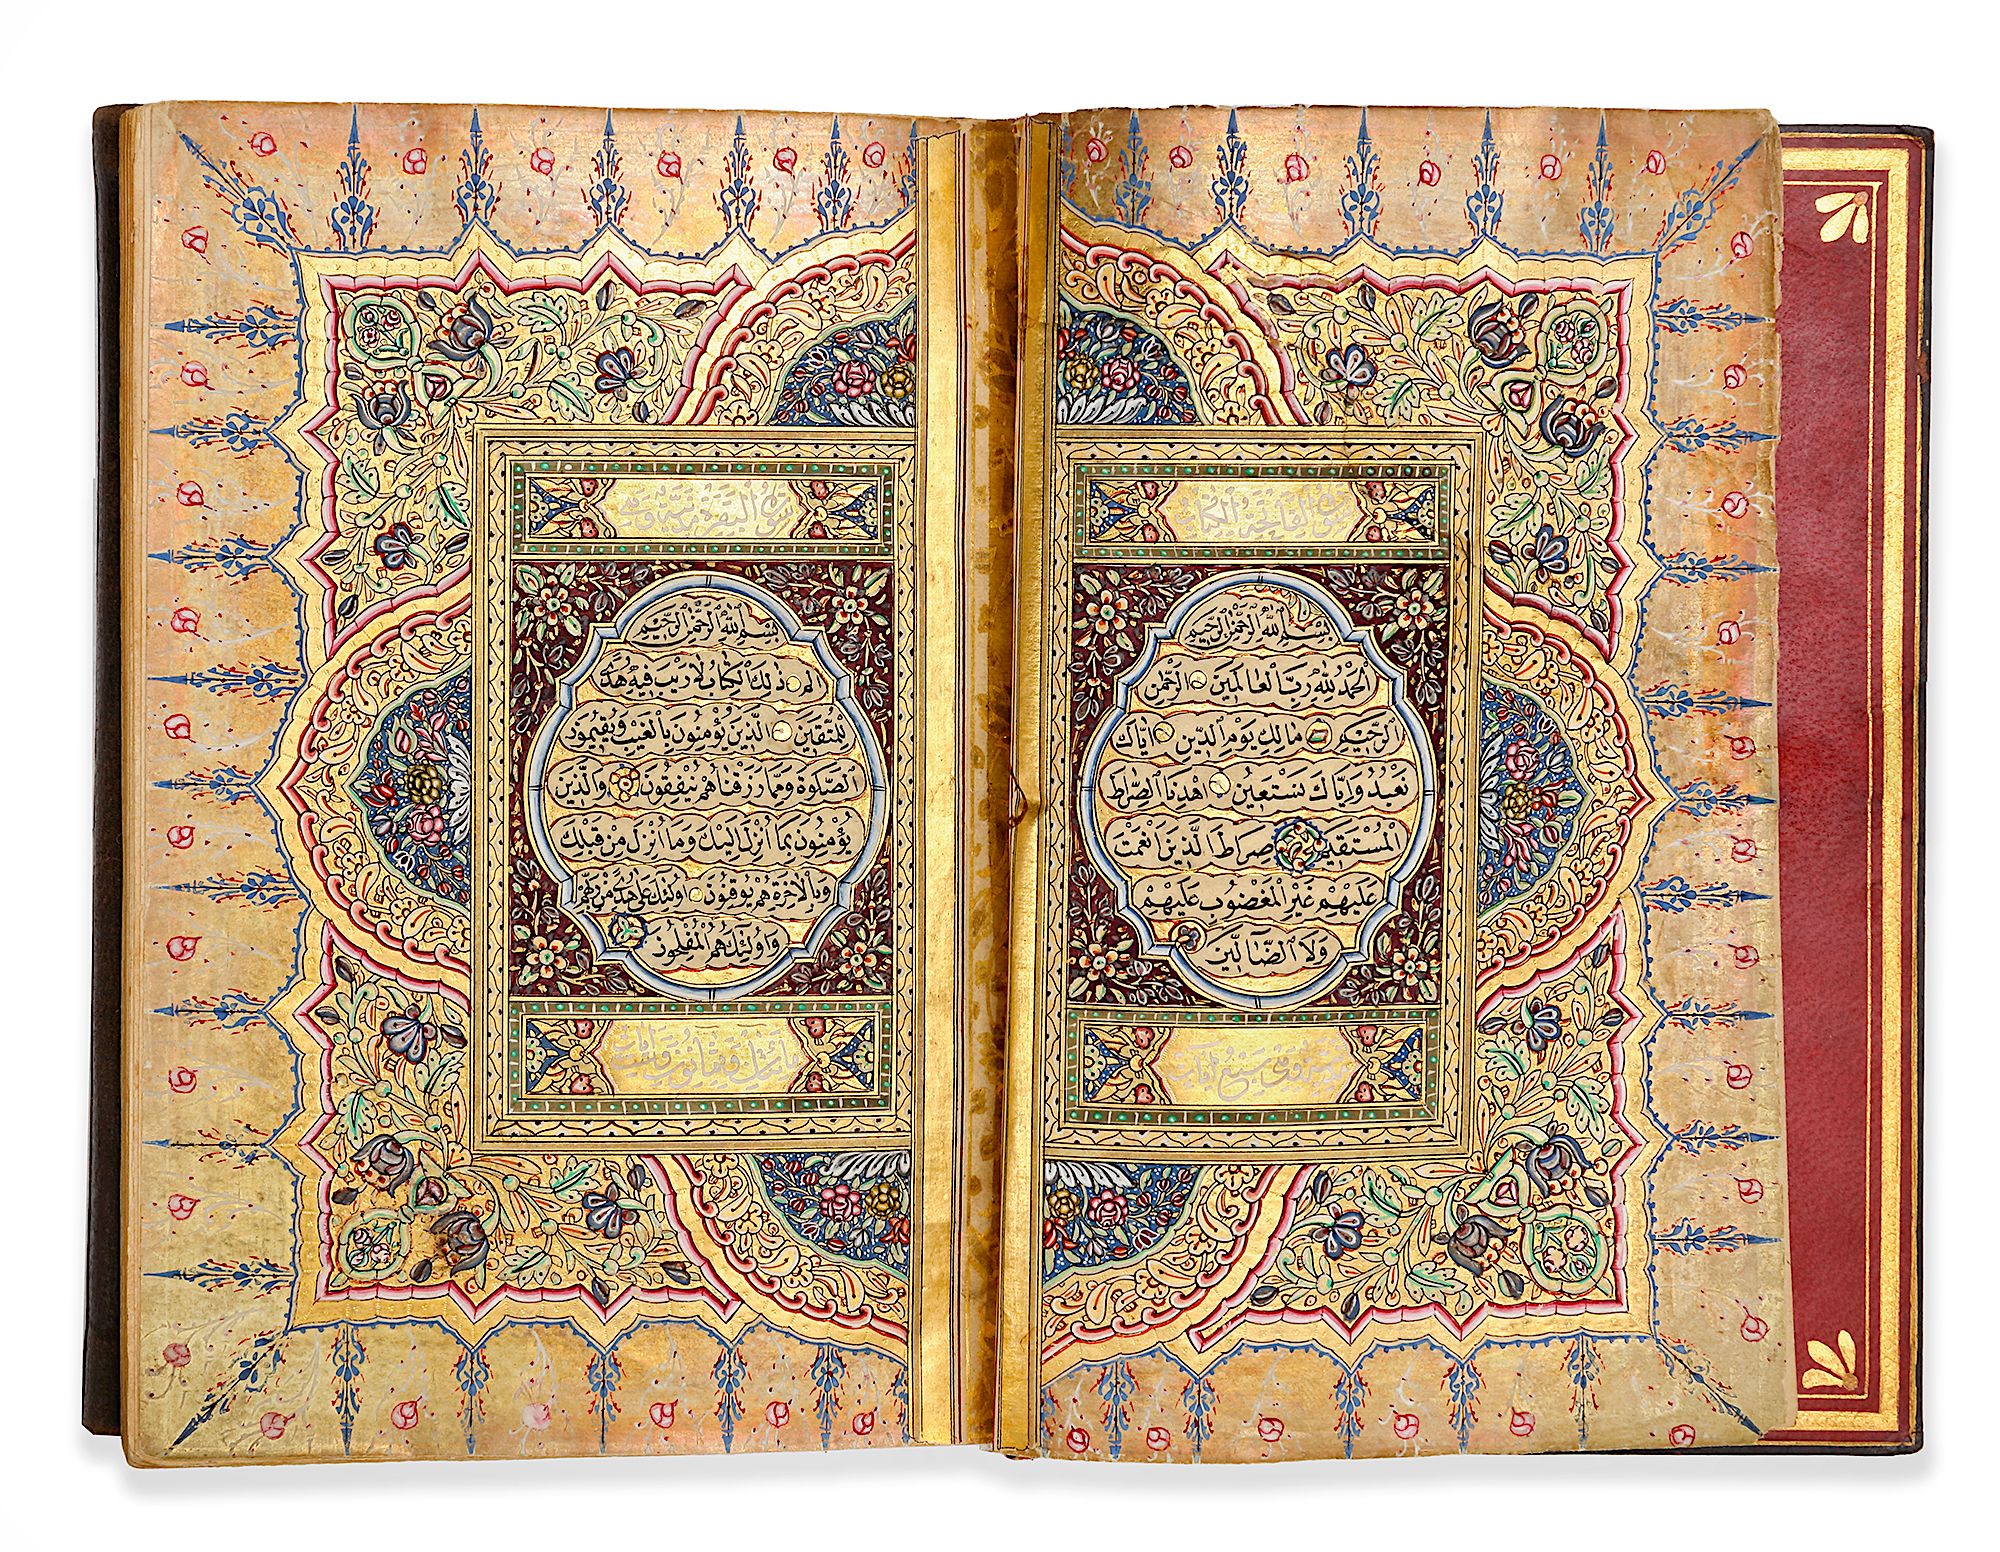 سورة الفاتحة الكتاب
بسم الله الرحمن الرحيم
الحمد لله رب العالمين الرحمن
الرحيم مالك يوم الدين اياك
نعبد واياك نستعين اهدنا الصراط
المستقيم صراط الذين انعمت
عليهم غير المغضوب عليهم
ولا الضالين
وهي سبع آيات
سورة البقرة مدنية وهي
بسم الله الرحمن الرحيم
الم ذلك الكتاب لا ريب فيه هدى
للمتقين الذين يؤمنون بالغيب ويقيمون
الصلوة ومما رزقناهم ينفقون والذين
يؤمنون بما انزل اليك وما انزل من قبلك
وبالاخرة هم يوقنون اولئك على هدى من ربهم
واولئك هم المفلحون
مأتان وثمانون آيات